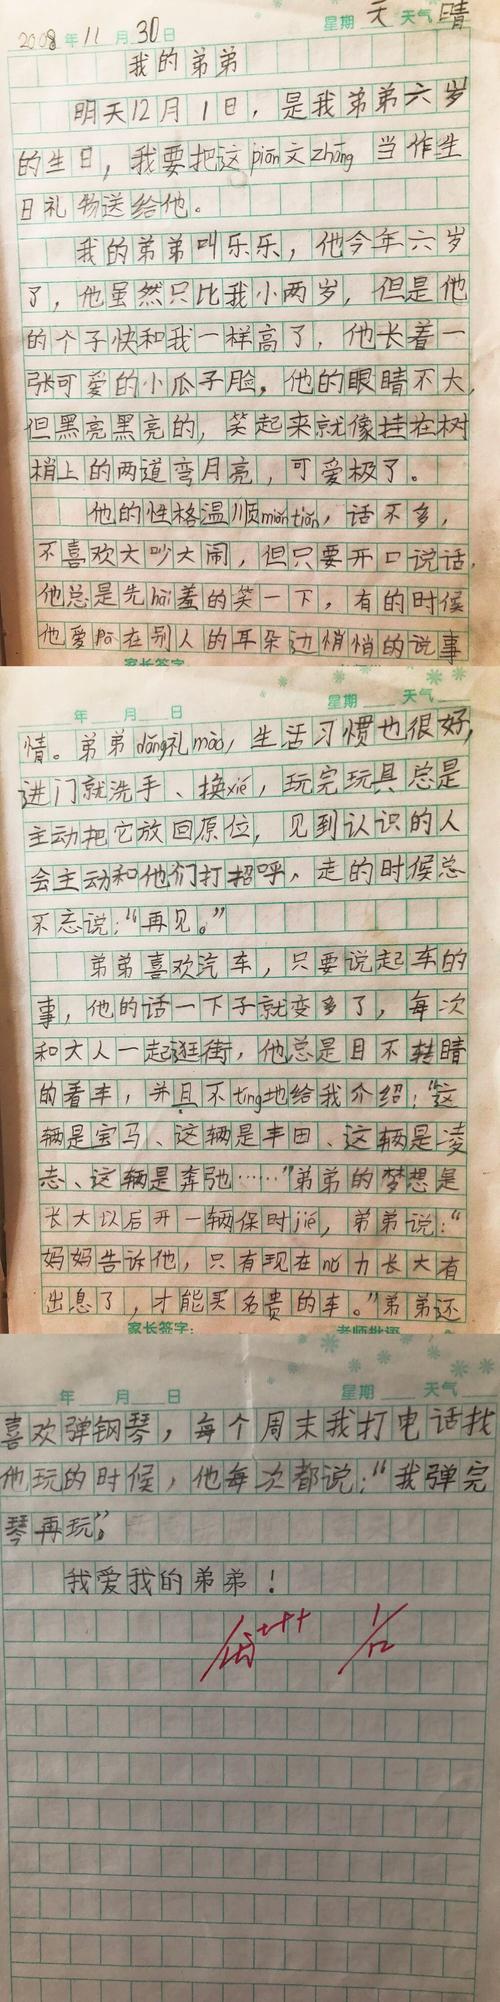 2008年11月30日 星期 天 天气 晴
我的弟弟
明天12月1日，是我弟弟六岁
的生日，我要把这piān文zhāng当作生
日礼物送给他。
我的弟弟叫乐乐，他今年六岁
了，他虽然只比我小两岁，但是他
的个子快和我一样高了，他长着一
张可爱的小瓜子脸，他的眼睛不大，
但黑亮黑亮的，笑起来就像挂在树
梢上的两道弯月亮，可爱极了。
他的性格温顺miǎn tiǎn，话不多，
不喜欢大吵大闹，但只要开口说话，
他总是先hài羞的笑一下，有的时候
他爱pā在别人的耳朵边悄悄的说事
家长签字
年 月 日 星期 天气
情。弟弟dǒng礼mào，生活习惯也很好，
进门就洗手、换xié，玩完玩具总是
主动把它放回原位，见到认识的人
会主动和他们打招呼，走的时候总
不忘说：“再见。”
弟弟喜欢汽车，只要说起车的
事，他的话一下子就变多了，每次
和大人一起逛街，他总是目不转睛
的看车，并且不tíng地给我介绍：“这
辆是宝马、这辆是丰田、这辆是凌
志、这辆是奔弛……”弟弟的梦想是
长大以后开一辆保时jié，弟弟说：“
妈妈告诉他，只有现在nǔ力长大有
出息了，才能买名贵的车。”弟弟还
家长签字： 老师批语
年 月 日 星期 天气
喜欢弹钢琴，每个周末我打电话找
他玩的时候，他每次都说：“我弹完
琴再玩”。
我爱我的弟弟！
优+++